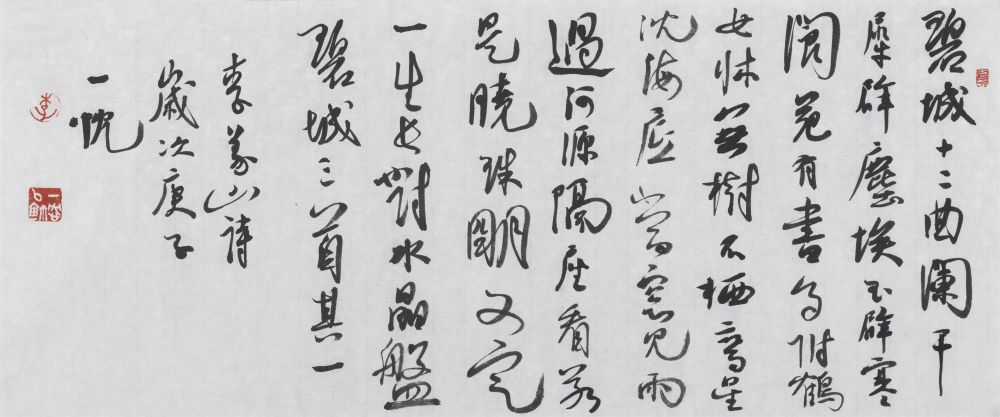 碧城十二曲瀾干
犀辟塵埃玉辟寒
閬苑有書多附鶴
女牀無樹不栖鸞星
沈海底當窗見雨
過河源隔座看若
是曉珠明又定
一生長對水晶盤
碧城三首其一
李義山詩
歲次庚子
一
李